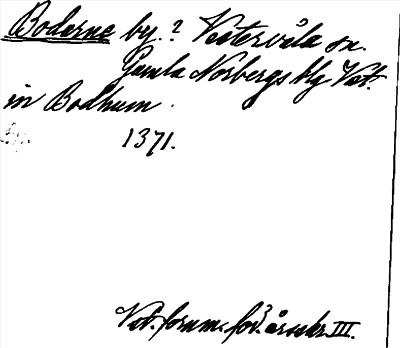 Boderne by.? Vestervåla sn.
Gamla Norbergs blg Vst.
in Bodhum.
1371.
Vst. fornm. för. årsskr. III.